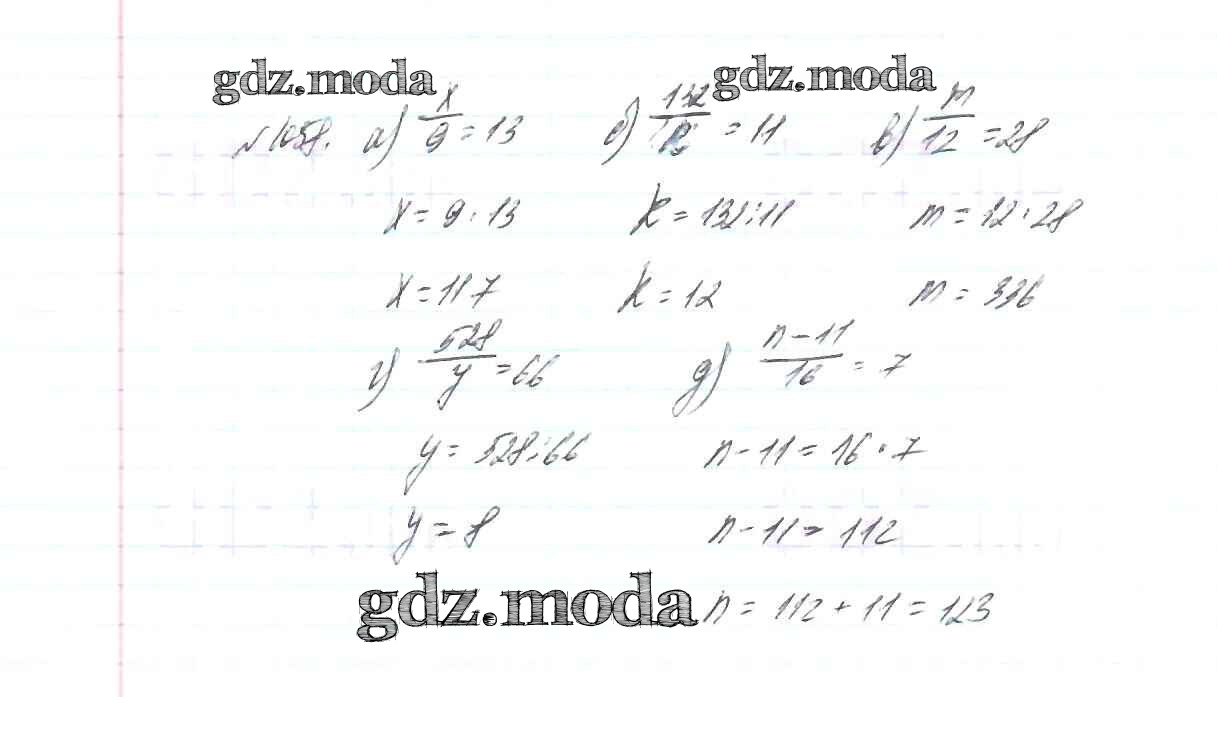 gdz.moda gdz.moda
№1058. а) x/9 = 13 б) 132/k = 11 в) m/12 = 28
x = 9 · 13 k = 132 : 11 m = 12 · 28
x = 117 k = 12 m = 336
г) 528/y = 66 д) n - 11/16 = 7
y = 528 : 66 n - 11 = 16 · 7
y = 8 n - 11 = 112
gdz.moda n = 112 + 11 = 123